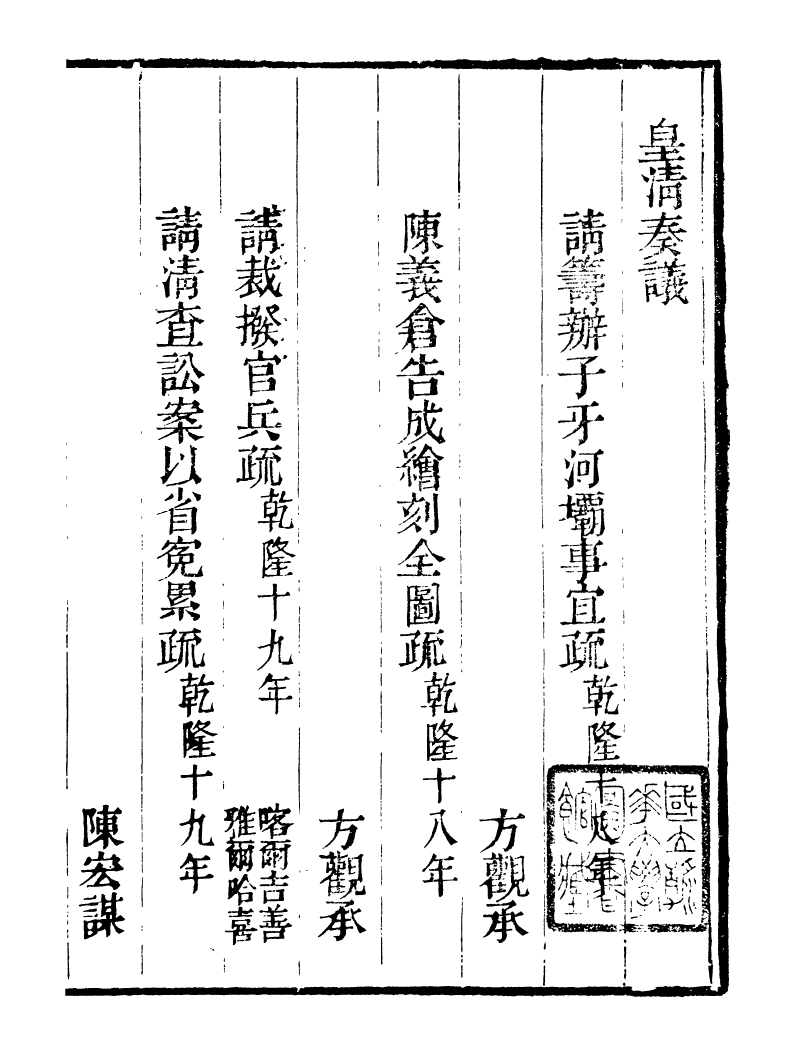 皇清奏議
請籌辦子牙河壩事宜疏乾隆十八年
方觀承
陳義倉告成繪刻全圖疏乾隆十八年
方觀承
請裁撥官兵疏乾隆十九年
喀爾吉善
雅爾哈喜
請清查訟案以省冤累疏乾隆十九年
陳宏謀